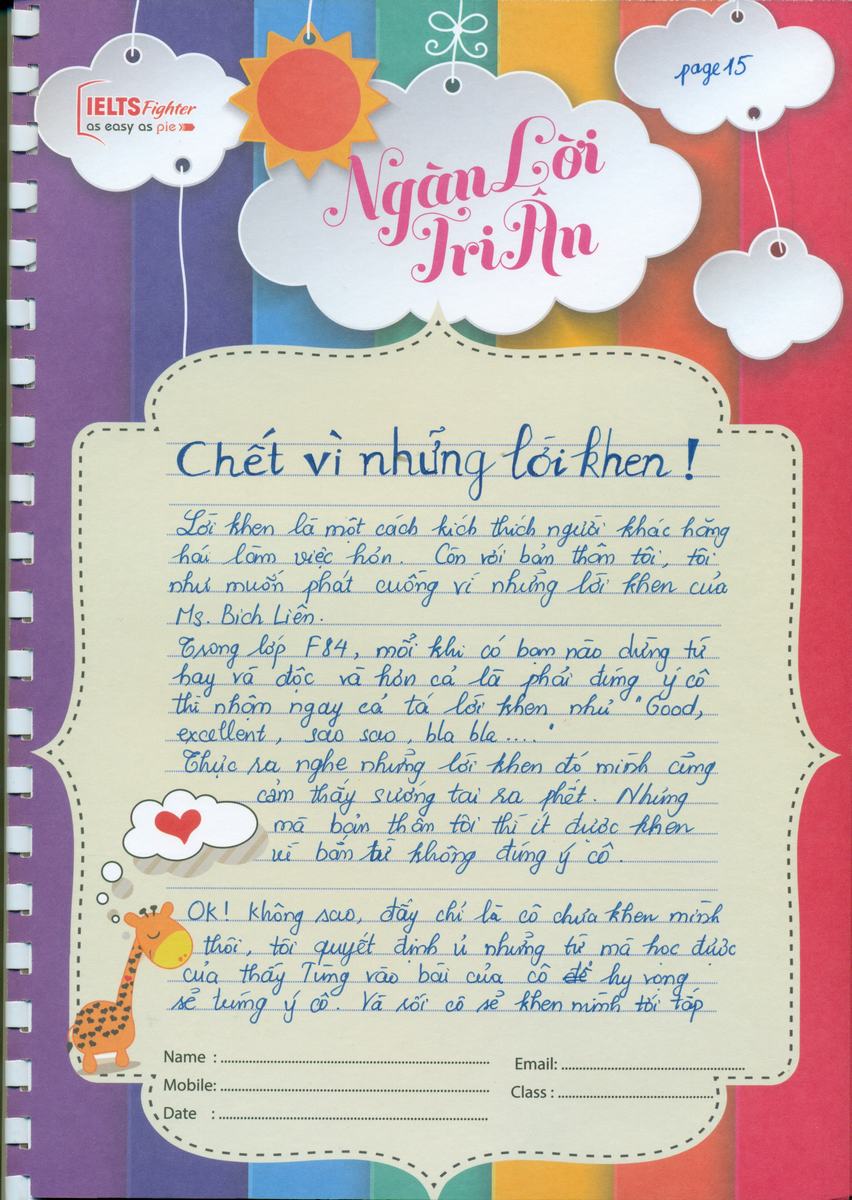 page 15
IELTS Fighter
as easy as pie
Ngàn Lời
Tri Ân
Chết vì những lời khen !
Lời khen là một cách kích thích người khác hăng
hái làm việc hơn. Còn với bản thân tôi, tôi
như muốn phát cuồng vì những lời khen của
Ms. Bích Liên.
Trong lớp F84, mỗi khi có bạn nào dùng từ
hay và độc và hơn cả là phải đúng ý cô
thì nhận ngay cả tá lời khen như "Good,
excellent, sao sao, bla bla...."
Thực ra nghe những lời khen đó mình cũng
cảm thấy sướng tai ra phết. Nhưng
mà bản thân tôi thì ít được khen
vì bắn từ không đúng ý cô.
OK! Không sao, đấy chỉ là cô chưa khen mình
thôi, tôi quyết định ủ những từ mà học được
của thầy Tùng vào bài của cô để hy vọng
sẽ trúng ý cô. Và rồi cô sẽ khen mình tới tấp
Name :
Email:
Mobile:
Class :
Date :